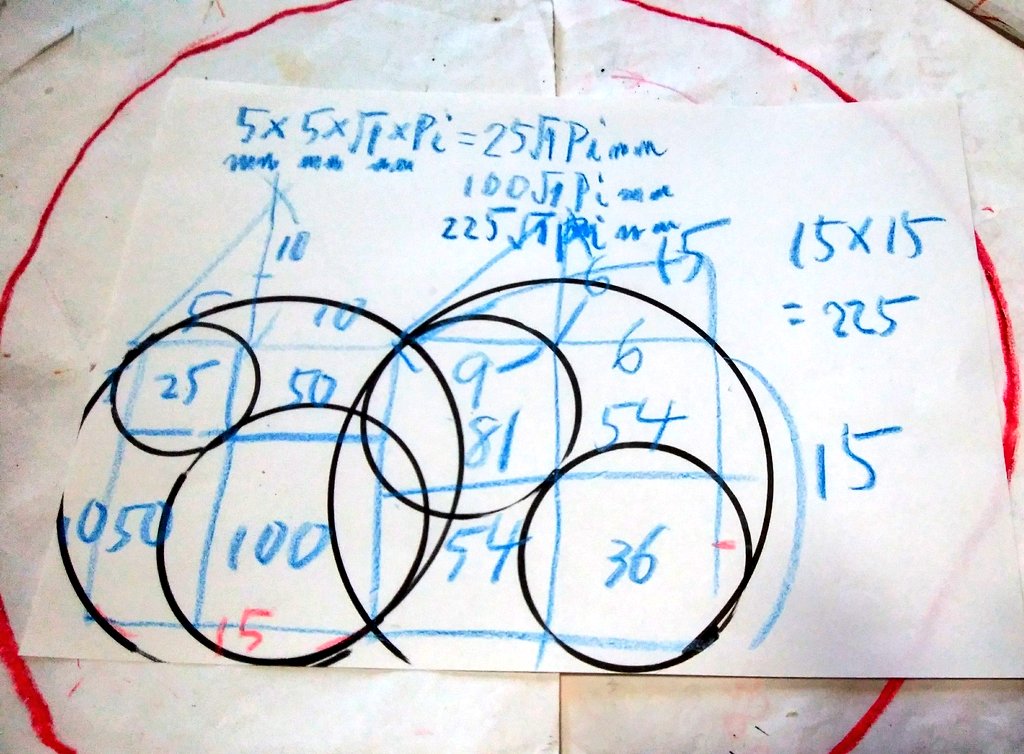 5×5×√1×Pi=25√1Pimm
mm mm mm
100√1Pimm
225√1Pimm
10
6
15
15×15
=225
5
10
25
50
9
6
81
54
15
1050
100
54
36
15